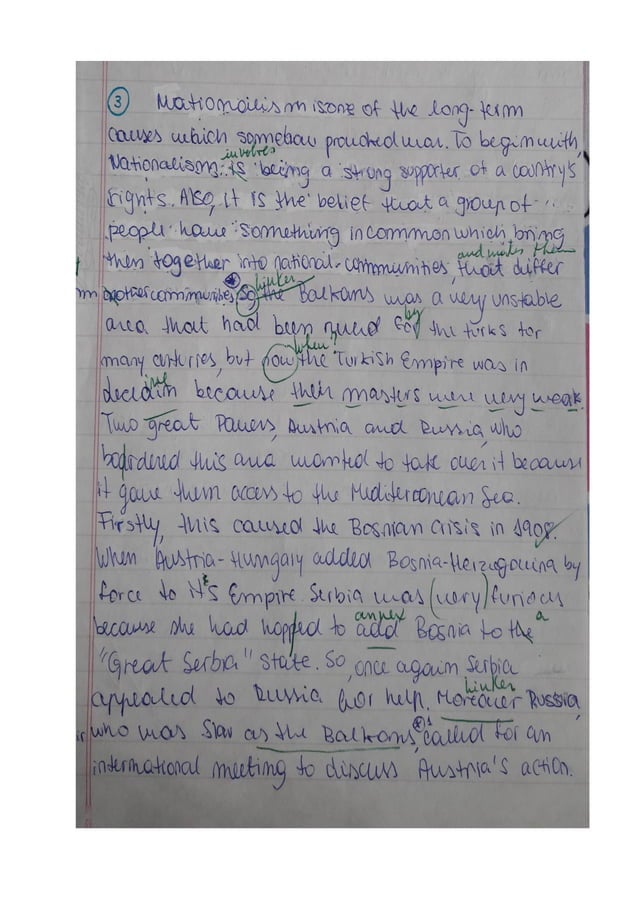 3 Nationalism is one of the long-term
causes which somehow provoked war. To begin with,
involves
Nationalism: is being a strong supporter of a country's
rights. Also, it is the belief that a group of
people have something in common which bring
and makes them
then together into national-communities, that differ
linker
other communities. So the Balkans was a very unstable
by
area that had been ruled for the turks for
when?
many centuries, but now the Turkish Empire was in
because their masters were very weak.
Two great Powers, Austria and Russia, who
bordered this area wanted to take over it because
it gave them access to the Mediterranean Sea.
Firstly, this caused the Bosnian crisis in 1908.
When Austria-Hungary added Bosnia-Herzegovina by
force to it's Empire. Serbia was (very) furious
annex a
because she had hopped to add Bosnia to the
"Great Serbia" State. So, once again Serbia
linker
appealed to Russia for help. Moreover Russia,
who was Slav as the Balkans, called for an
international meeting to discuss Austria's action.